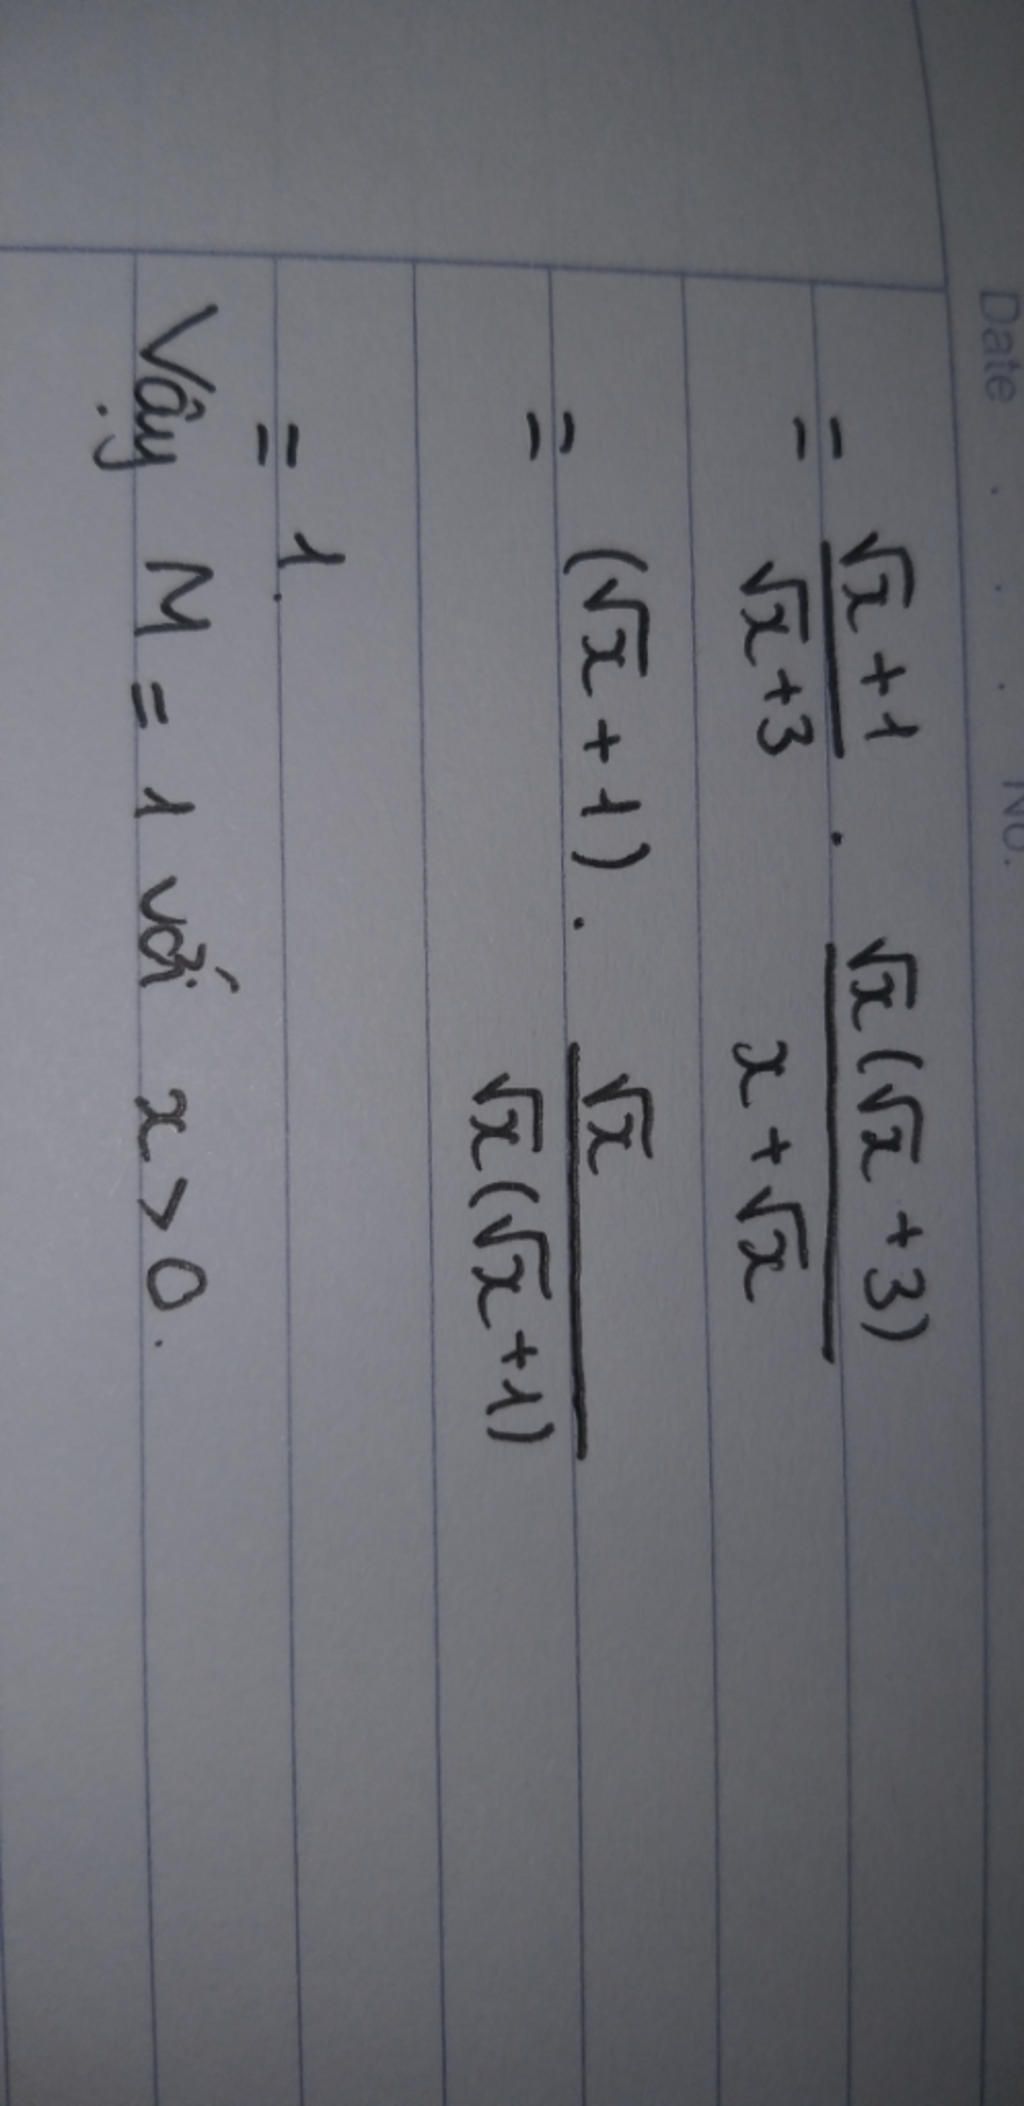 Date No.
= \frac{\sqrt{x}+1}{\sqrt{x}+3} . \frac{\sqrt{x}(\sqrt{x}+3)}{x+\sqrt{x}}
= (\sqrt{x}+1) . \frac{\sqrt{x}}{\sqrt{x}(\sqrt{x}+1)}
= 1.
Vậy M = 1 với x > 0.